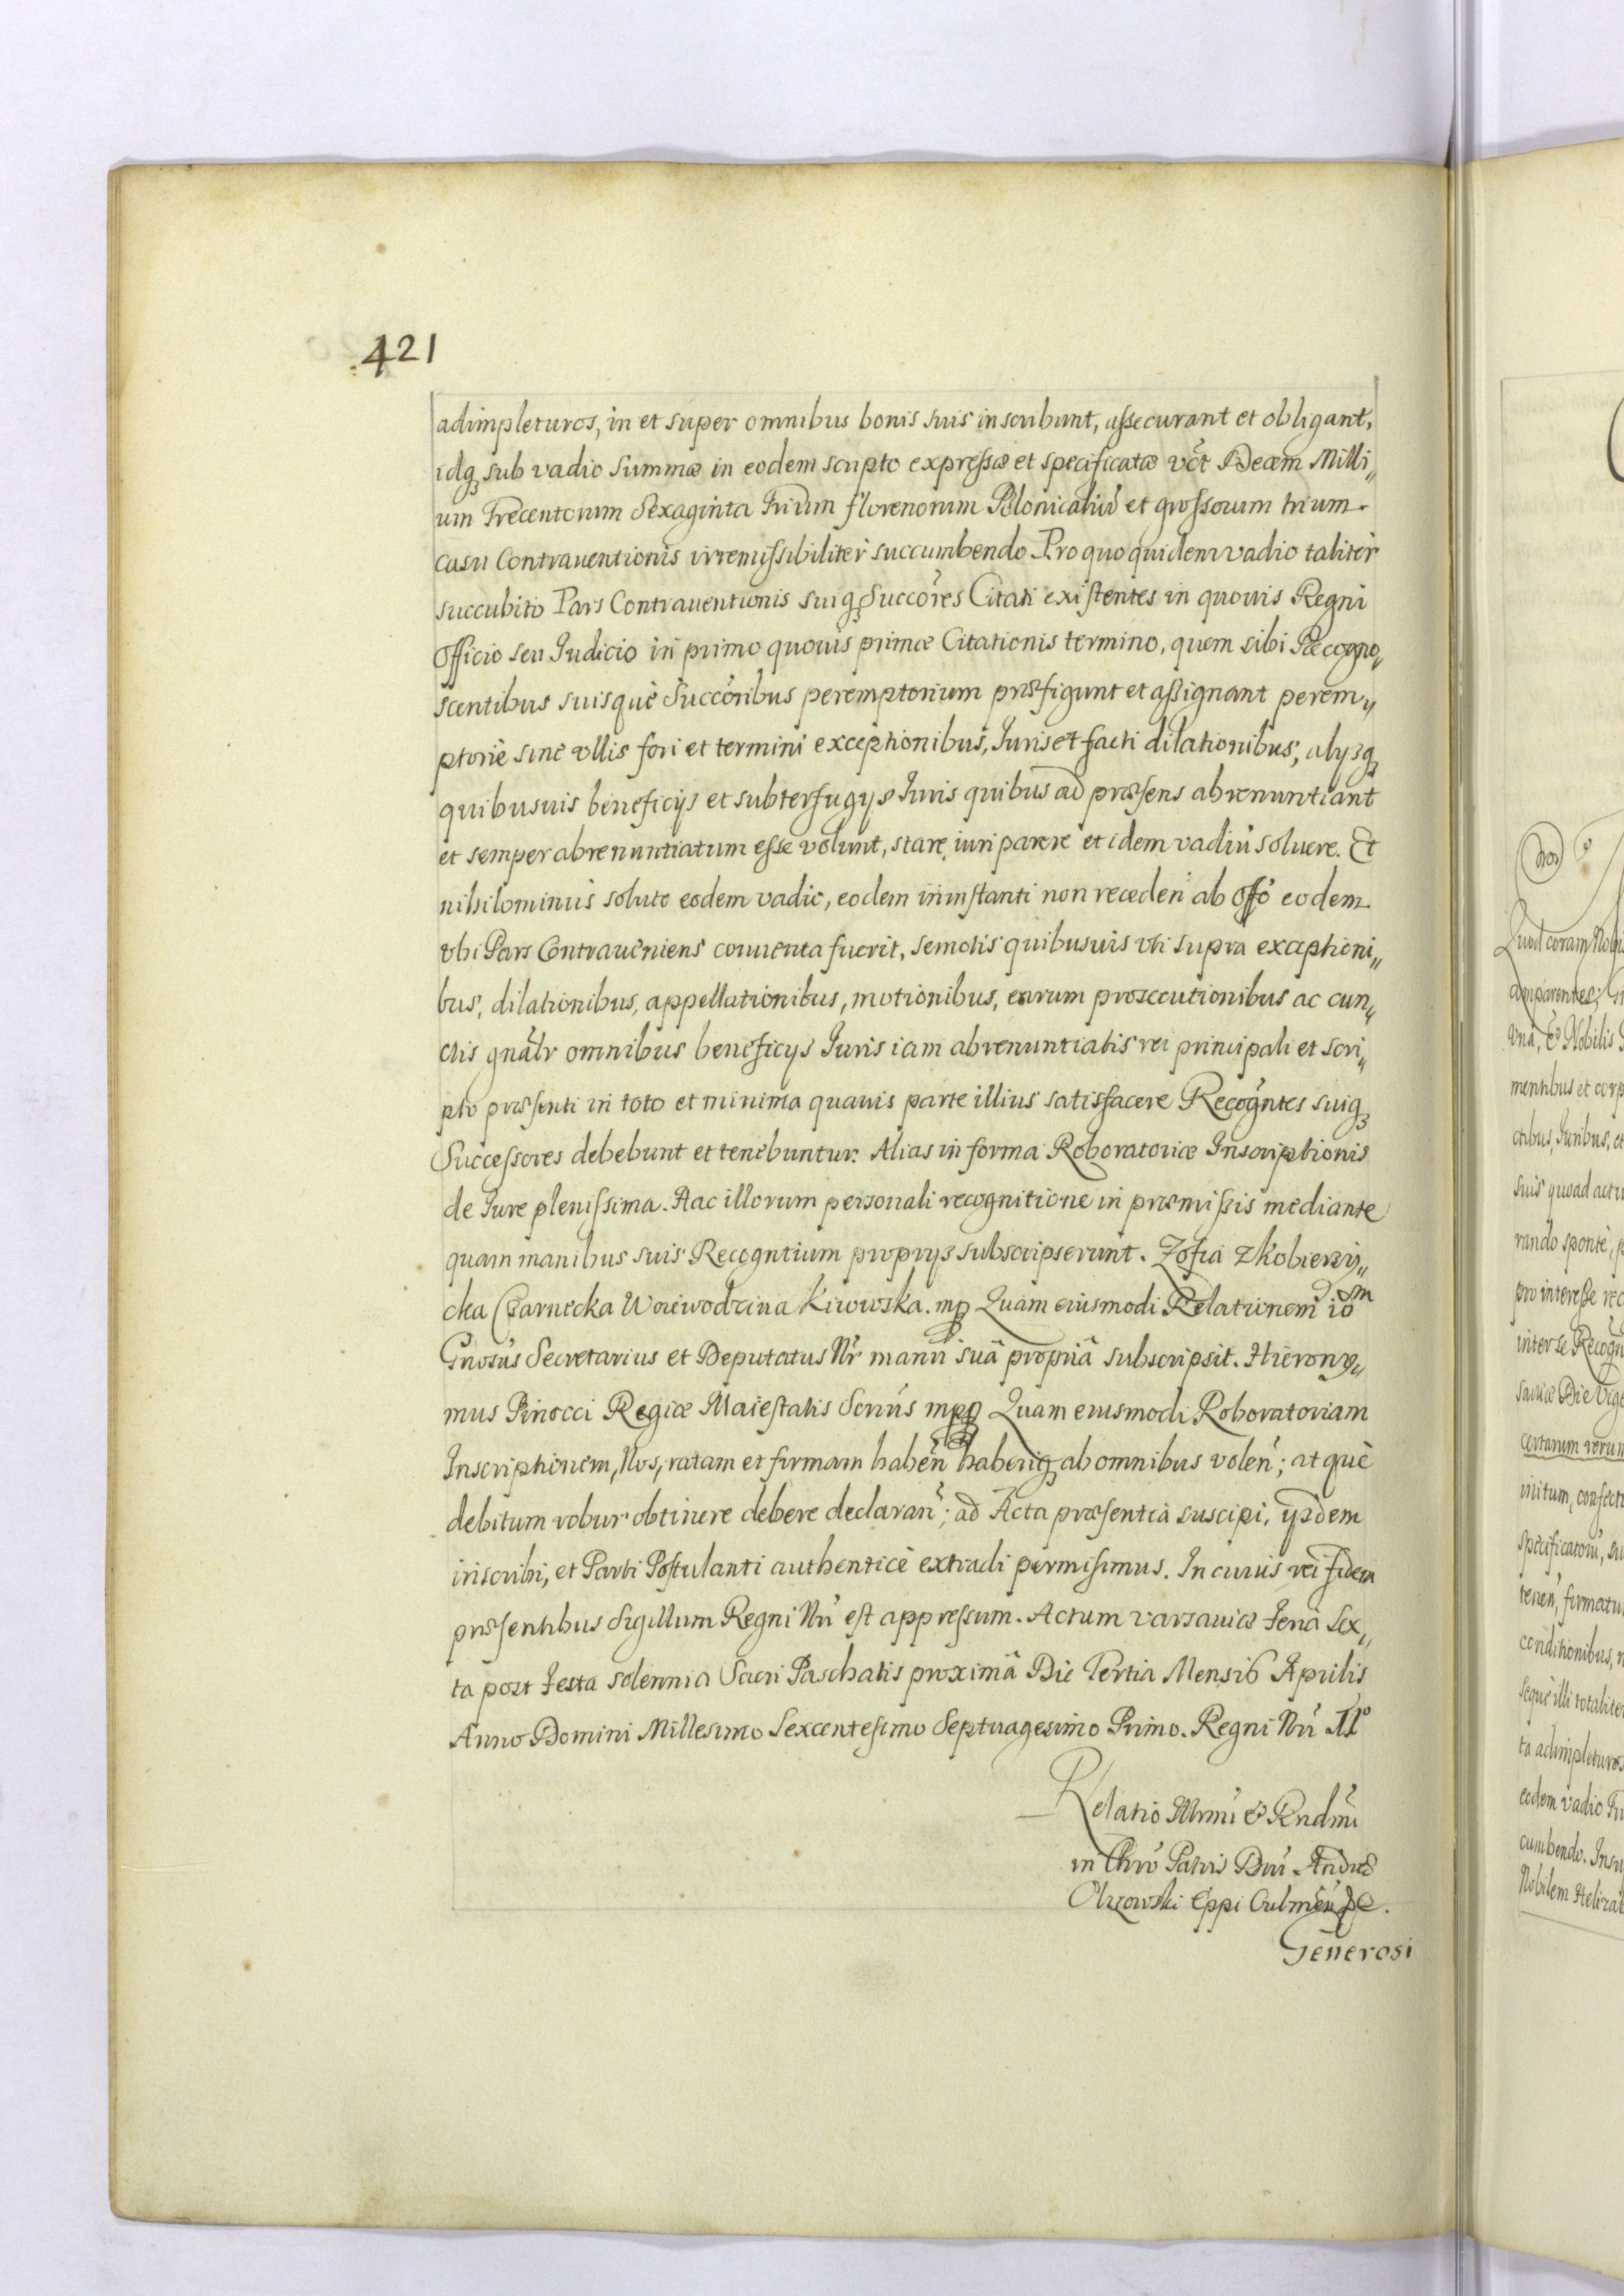 421
adimpleturos, in et super omnibus bonis suis inscribunt, assecurant et obligant,
idq₃ sub vadio summæ in eodem scripto expressæ et specificatæ vẽt Decem Milli„
um Trecentorum Sexaginta Trium florenorum Polonicaliũ et grossorum trium.
casu Contrauentionis irremissibiliter succumbendo. Pro quo quidem vadio taliter
succubito Pars Contrauentionis suiq₃ Succõres Citati existentes in quouis Regni
Officio seu Iudicio in primo quouis primæ Citationis termino, quem sibi Recogno„
scentibus suisquè Succõribus peremptorium præfigunt et assignant perem„
ptoriè sinè vllis fori et termini exceptionibus, Iuris et facti dilationibus, alysq₃
quibusuis beneficijs et subterfugys Iuris quibus ad præsens abrenuntiant
et semper abrenuntiatum esse volunt, stare, iuri parere et idem vadiũ soluere. Et
nihilominus soluto eodem vadio, eodem in instanti non receden̄ ab offõ eodem
vbi Pars Contraueniens conuenta fuerit, semotis quibusuis vti supra exceptioni„
bus, dilationibus, appellationibus, motionibus, earum prosecutionibus ac cun„
ctis gnãlr omnibus beneficys Iuris iam abrenuntiatis rei principali et scri„
pto præsenti in toto et minima quauis parte illius satisfacere Recog̃ntes suiq₃
Successores debebunt et tenebuntur. Alias in forma Roboratoriæ Inscriptionis
de Iure plenissima. Hac illorum personali recognitione in præmissis mediante
quam manibus suis Recogntium proprys subscripserunt. Zofia Zkobierzy„
cka Czarnecka Woiewodzina Kiiowska. mp Quam eiusmodi Relationem idm̃
Gñosus Secretarius et Deputatus Nr̃ manũ suâ propriâ subscripsit. Hierony„
mus Pinocci Regiæ Maiestatis Scrius mpp Quam eiusmodi Roboratoriam
Inscriptionem, Nos, ratam et firmam haben̄ haberiq₃ ab omnibus volen̄; atquè
debitum robur obtinere debere declaran̄; ad Acta præsentia suscipi, ysdem
inscribi, et Parti Postulanti authenticè extradi permisimus. In cuius rei fidem
præsentibus Sigillum Regni Nr̃i est appressum. Actum Varsauiæ Feria Sex„
ta post Festa solennia Sacri Paschatis proximâ Die Tertia Mensis Aprilis
Anno Domini Millesimo Sexcentesimo Septuagesimo Primo. Regni Nr̃i II°
Relatio Illmi & Rndmi
in Chrõ Patris Dni Andreæ
Olszowski Eppi Culmen̄
Generosi